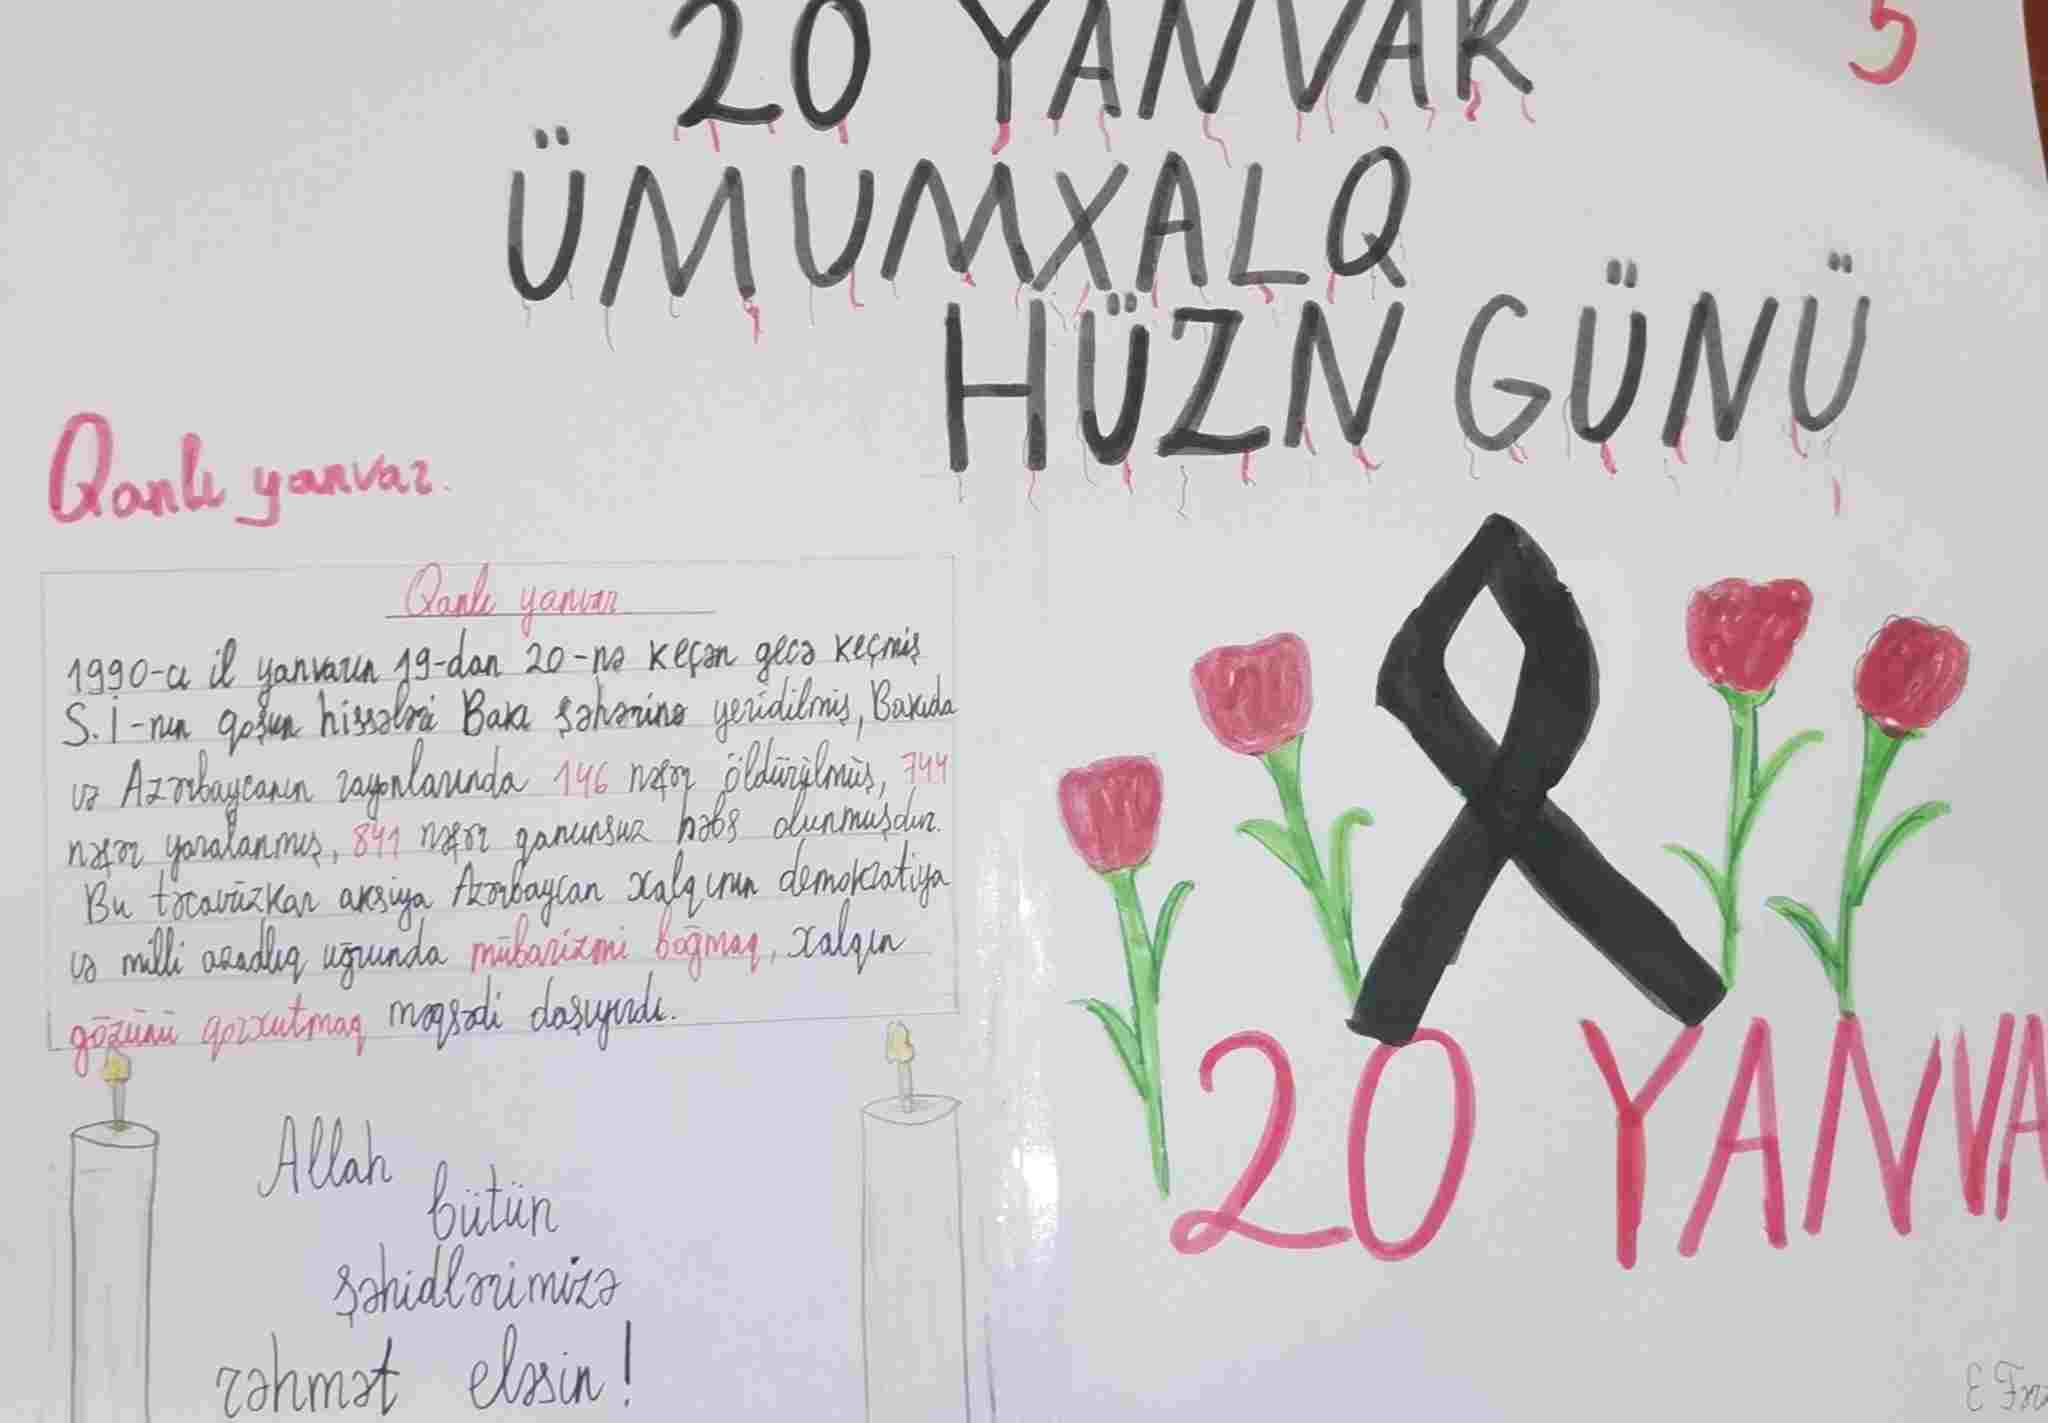 20 YANVAR
5
ÜMUMXALQ
HÜZN GÜNÜ
Qanlı yanvar.
Qanlı yanvar
1990-cı il yanvarın 19-dan 20-nə keçən gecə keçmiş
S.İ-nın qoşun hissələri Bakı şəhərinə yeridilmiş, Bakıda
və Azərbaycanın rayonlarında 146 nəfər öldürülmüş, 744
nəfər yaralanmış, 841 nəfər qanunsuz həbs olunmuşdur.
Bu təcavüzkar aksiya Azərbaycan xalqının demokratiya
və milli azadlıq uğrunda mübarizmi boğmaq, xalqın
gözünü qorxutmaq məqsədi daşıyırdı.
Allah
bütün
şəhidlərimizə
rəhmət eləsin!
20 YANVA